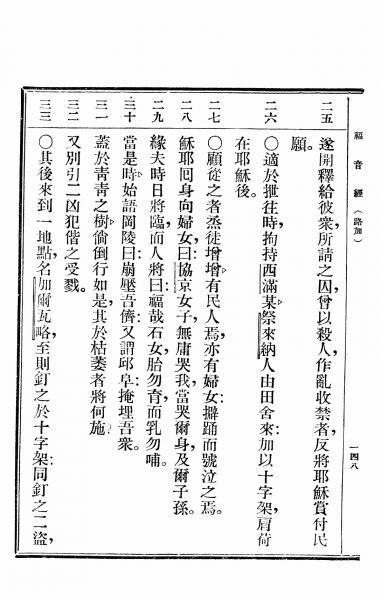 福音經（路加） 一四八
二五 遂開釋給彼衆所請之囚，曾以殺人作亂收禁者，反將耶穌賞付民
願。
二六 ○適於往時，拘持西滿某，祭來納人，由田舍來，加以十字架，肩荷
在耶穌後。
二七 ○顧從之者，烝徒增增，有民人焉，亦有婦女，擗踊而號泣之焉。
二八 穌耶囘身向婦女曰：協京女子，無庸哭我，當哭爾身，及爾子孫。
二九 緣夫時日將臨，而人將曰：福哉石女，胎勿育，而乳勿哺。
三十 當是時，始語岡陵曰：崩壓吾儕，又謂邱阜：掩埋吾衆。
三一 蓋於青青之樹，倘倒行如是，其於枯萎者，將何施？
三二 又別引二凶犯，偕之受戮。
三三 ○其後來到一地，點名加爾瓦略，至則釘之於十字架，同釘之二盜，